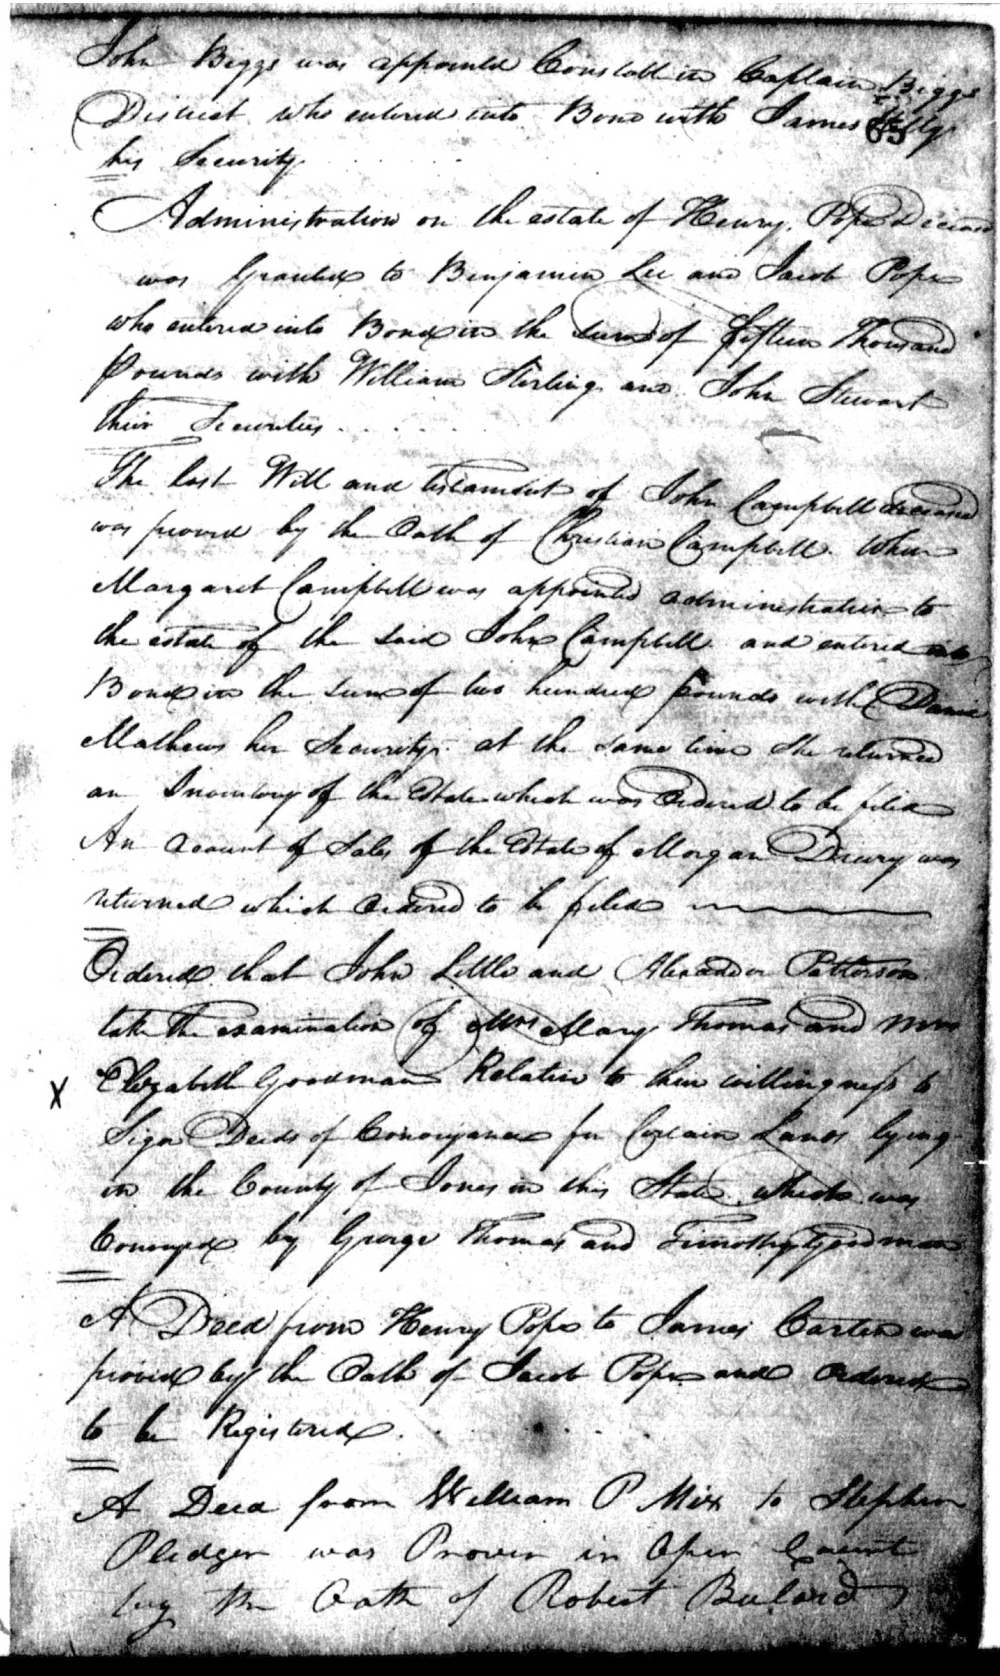 John Biggs was appointed Constable in Captain Biggs
District who entered into Bond with James
65
his Security
Administration on the estate of Henry Pope Deceased
was Granted to Benjamin Lee and Jacob Pope
who entered into Bond in the sum of fifteen Thousand
Pounds with William Sterling and John Stewart
their Securities
The last Will and testament of John Campbell deceased
was proved by the Oath of Christian Campbell. When
Margaret Campbell was appointed administratrix to
the estate of the said John Campbell and entered into
Bond in the sum of two hundred pounds with
Mathews her Security. at the same time She returned
an Inventory of the Estate which was Ordered to be filed
An Account of Sales of the Estate of Morgan Drury was
returned which Ordered to be filed
Ordered that John Little and Alexander Patterson
take the examination of Mrs Mary Thomas and Mrs
X Elizabeth Goodman Relative to their willingness to
Sign Deeds of Conveyance for Certain Lands lying
in the County of Jones in this State which was
Conveyed by George Thomas and Timothy Goodman
A Deed from Henry Pope to James Carter was
proved by the Oath of Jacob Pope and Ordered
to be Registered.
A Deed from William P Mix to Stephen
Pledger was Proven in Open Court
by the Oath of Robert Bulard